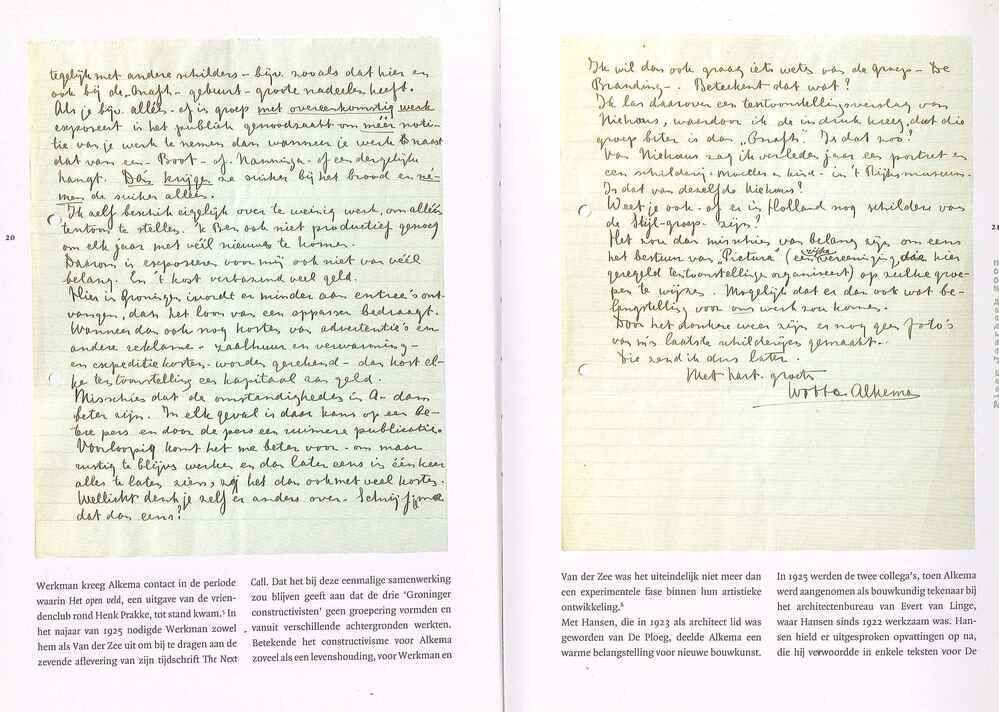 tegelijk met andere schilders – bijv. zooals dat hier en
ook bij de Onafh – gebeurt – groote nadeelen heeft.
Als je bijv. alléén – of in groep met overeenkomstig werk
exposeert is het publiek genoodzaakt om méér noti-
tie van je werk te nemen dan wanneer je werk naast
dat van een – Boot – of Nanninga – of een dergelijke
hangt. Dán krijgen ze suiker bij het brood en né-
men de suiker alléén.
Ik zelf beschik eigelijk over te weinig werk, om alléén
tentoon te stellen. 'k Ben ook niet productief genoeg
om elk jaar met véél nieuws te komen.
Daarom is exposeeren voor mij ook niet van véél
belang. En 't kost verbazend veel geld.
Hier in Groningen wordt er minder aan entree's ont-
vangen, dan het loon van een oppasser bedraagt.
Wanneer dan ook nog kosten van advertentie's en
andere reklame – zaalhuur en verwarming –
en expeditie kosten – worden gerekend – dan kost el-
ke tentoonstelling een kapitaal aan geld.
Misschien dat de omstandigheden in A–dam
beter zijn. In elk geval is daar kans op een be-
tere pers en door de pers een ruimere publicatie.
Voorloopig komt het me beter voor – om maar
rustig te blijven werken en dan later eens in één keer
alles te laten zien, zij het dan ook met veel kosten.
Wellicht denk je zelf er anders over – Schrijf me
dat dan eens?
20
Werkman kreeg Alkema contact in de periode
waarin Het open veld, een uitgave van de vrien-
denclub rond Henk Prakke, tot stand kwam.⁵ In
het najaar van 1925 nodigde Werkman zowel
hem als Van der Zee uit om bij te dragen aan de
zevende aflevering van zijn tijdschrift The Next
Call. Dat het bij deze eenmalige samenwerking
zou blijven geeft aan dat de drie 'Groninger
constructivisten' geen groepering vormden en
vanuit verschillende achtergronden werkten.
Betekende het constructivisme voor Alkema
zoveel als een levenshouding, voor Werkman en
Ik wil dan ook graag iets weten van de groep – De
Branding –. Beteekent dat wat?
Ik las daarover een tentoonstellingsverslag van
Niehaus, waardoor ik de indruk kreeg, dat die
groep beter is dan „Onafh". Is dat zoo?
Van Niehaus zag ik verleden jaar een portret en
een schilderij – moeder en kind – in 't Rijksmuseum.
Is dat van dezelfde Niehaus?
Weet je ook – of er in Holland nog schilders van
de Stijl-groep – zijn?
Het zou dan misschien van belang zijn om eens
het bestuur van „Pictura" (een rijke vereeniging, die hier
geregeld tentoonstellingen organiseert) op zulke groe-
pen te wijzen. Mogelijk dat er dan ook wat be-
langstelling voor ons werk zou komen.
Door het donkere weer zijn er nog geen foto's
van m'n laatste schilderijen gemaakt.
Die zend ik dus later.
Met hart. groeten
Wobbe Alkema
21
Van der Zee was het uiteindelijk niet meer dan
een experimentele fase binnen hun artistieke
ontwikkeling.⁶
Met Hansen, die in 1923 als architect lid was
geworden van De Ploeg, deelde Alkema een
warme belangstelling voor nieuwe bouwkunst.
In 1925 werden de twee collega's, toen Alkema
werd aangenomen als bouwkundig tekenaar bij
het architectenbureau van Evert van Linge,
waar Hansen sinds 1922 werkzaam was. Han-
sen hield er uitgesproken opvattingen op na,
die hij verwoordde in enkele teksten voor De